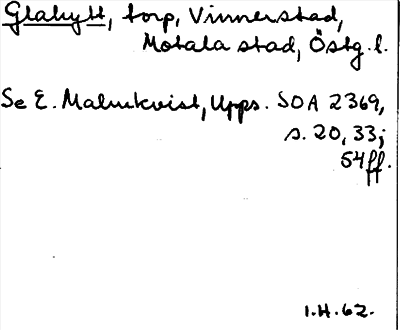 Glahytt, torp, Vinnerstad,
Motala stad, Östg. l.
Se E. Malmkvist, Upps. SOA 2369,
s. 20, 33;
54ff.
I.H. 62.